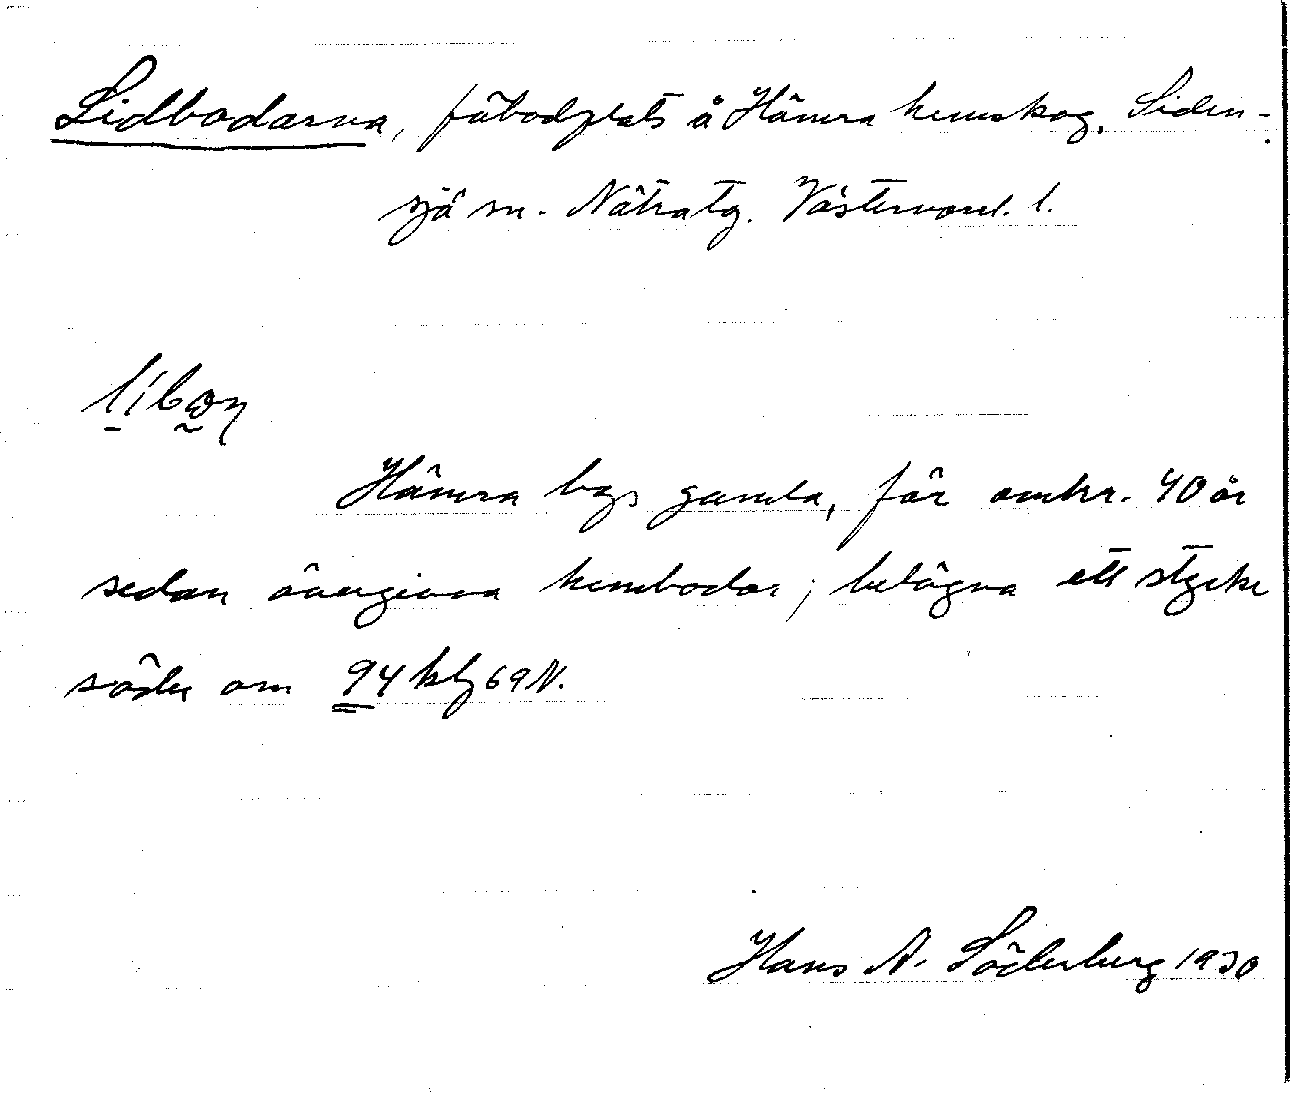 Lidbodarna, fäbodplats å Hämra hemskog, Siden-
sjö sn. Nätra tg. Västernorrl. l.
Hämra bys gamla, för omkr. 40 år
sedan övergivna hembodar; belägna ett stycke
söder om 94 hlj 69 N.
Hans A. Söderberg 1930